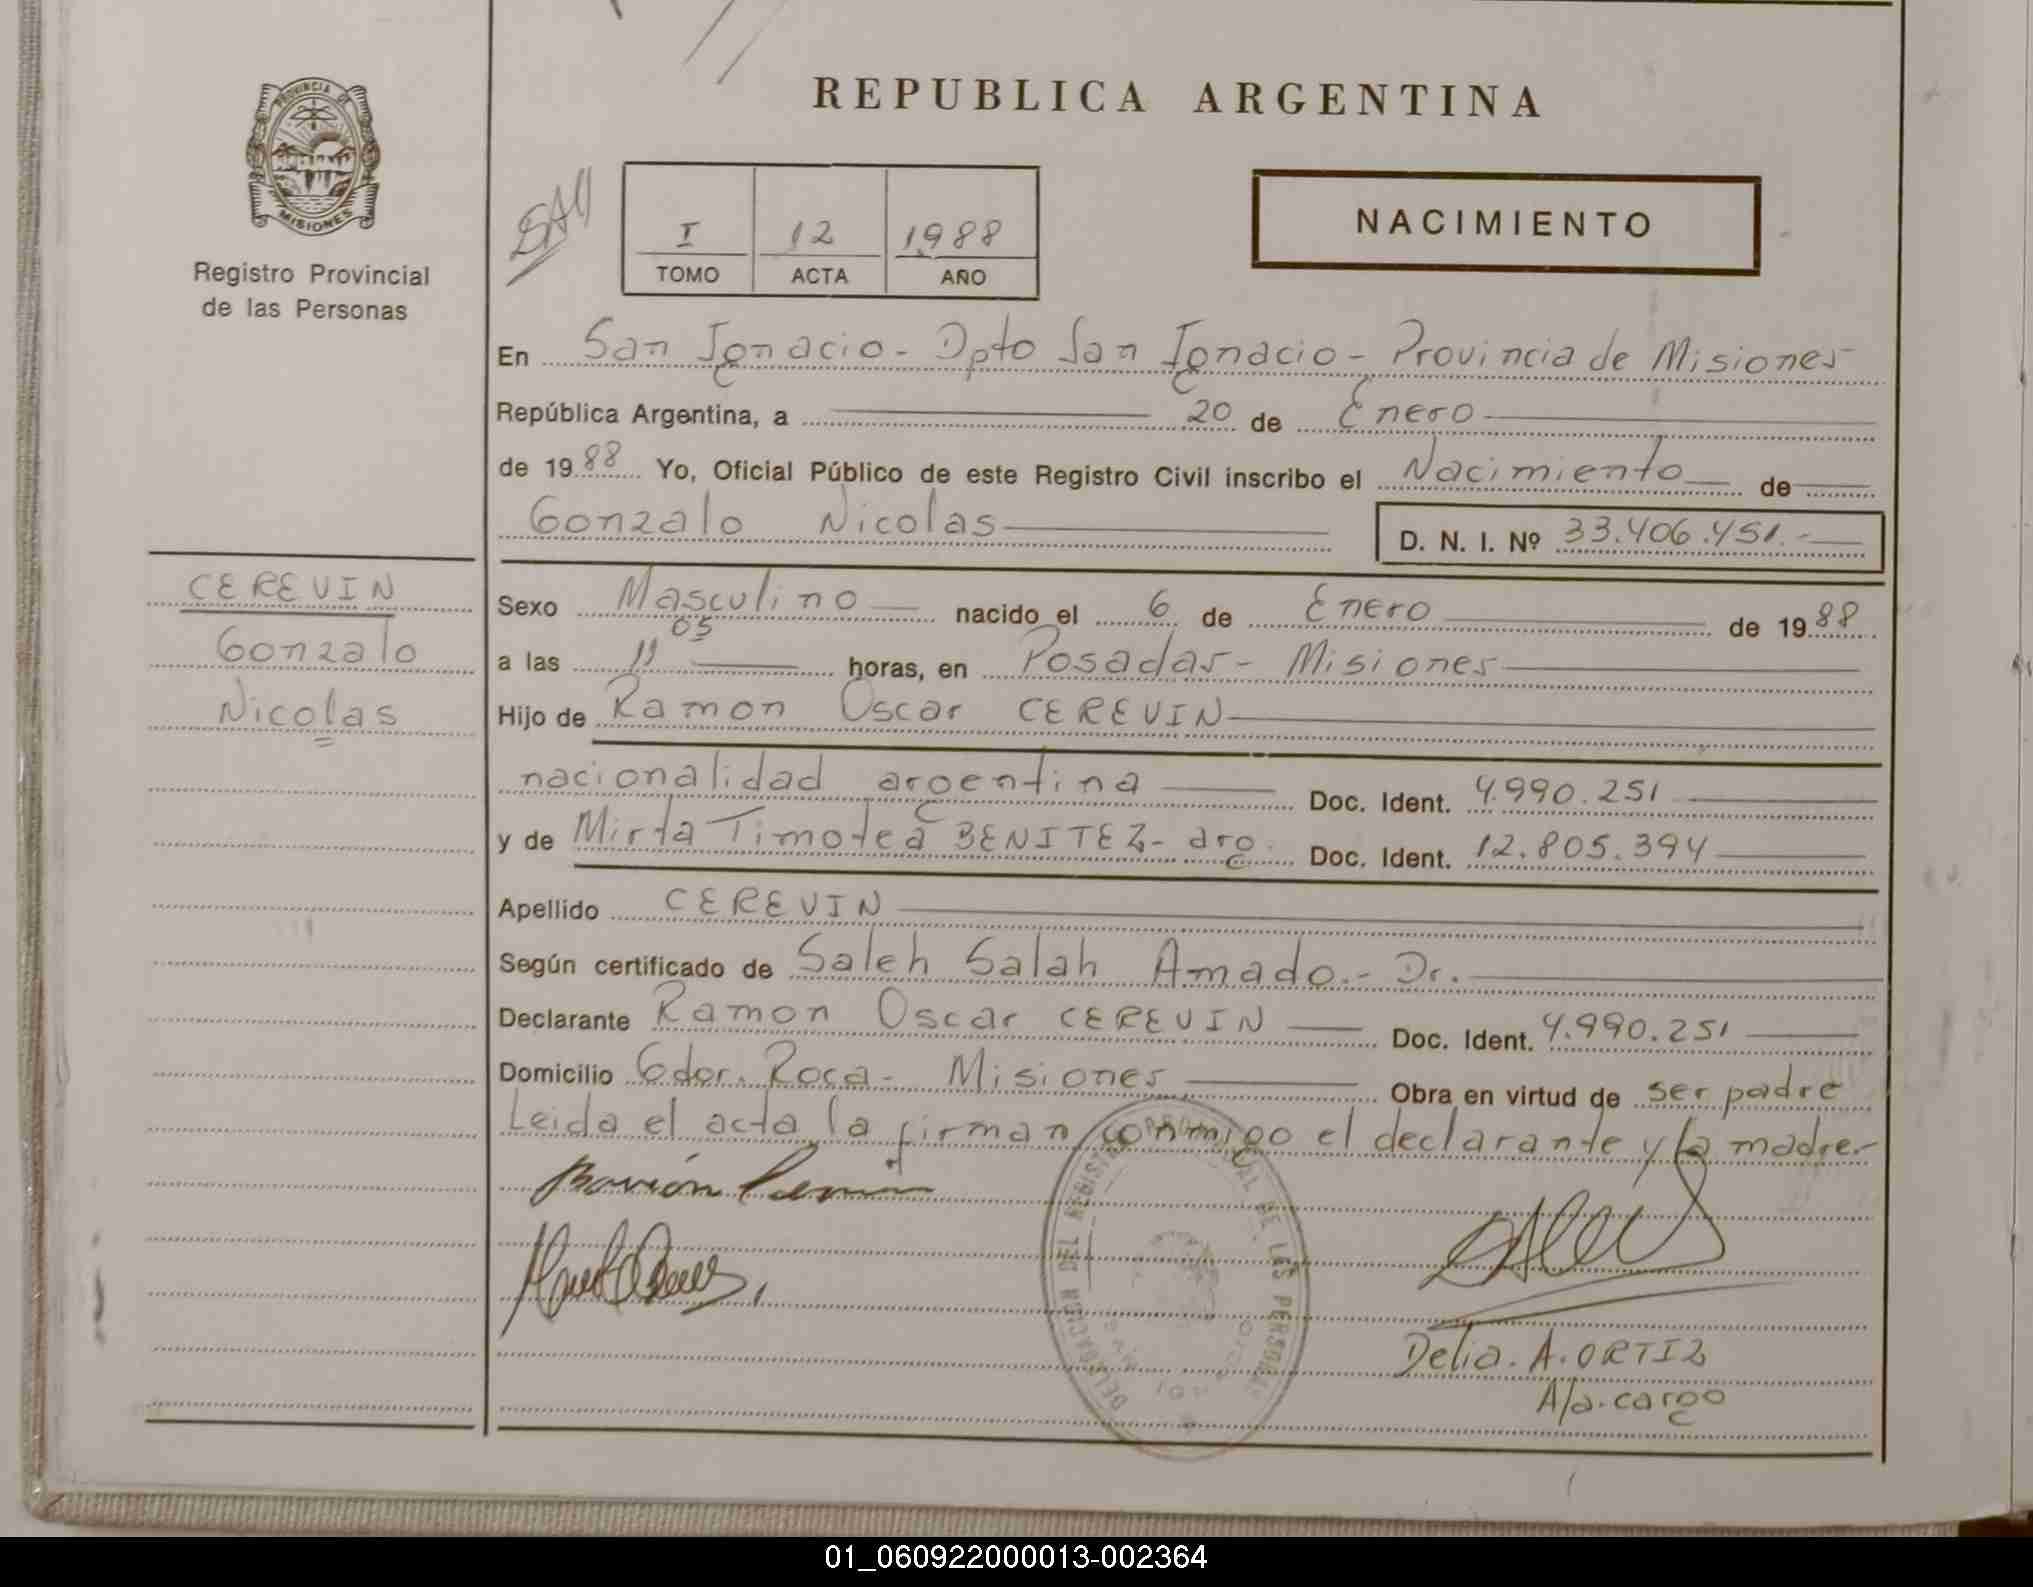 REPUBLICA ARGENTINA
PROVINCIA DE
MISIONES
Registro Provincial
de las Personas
I 12 1988
TOMO ACTA AÑO
NACIMIENTO
En San Ignacio - Dpto San Ignacio - Provincia de Misiones
República Argentina, a 20 de Enero
de 1988 Yo, Oficial Público de este Registro Civil inscribo el Nacimiento de
Gonzalo Nicolas D. N. I. Nº 33.406.451.-
CEREVIN
Gonzalo
Nicolas
Sexo Masculino nacido el 6 de Enero de 1988
a las 11 05 horas, en Posadas - Misiones
Hijo de Ramon Oscar CEREVIN
nacionalidad argentina Doc. Ident. 4.990.251
y de Mirta Timotea BENITEZ - arg. Doc. Ident. 12.805.394
Apellido CEREVIN
Según certificado de Saleh Salah Amado.- Dr.
Declarante Ramon Oscar CEREVIN Doc. Ident. 4.990.251
Domicilio Gdor. Roca - Misiones Obra en virtud de ser padre
Leida el acta, la firman conmigo el declarante y la madre-
DELEGACION DEL REGISTRO PROVINCIAL DE LAS PERSONAS
Delia. A. ORTIZ
A/a. cargo
01_060922000013-002364